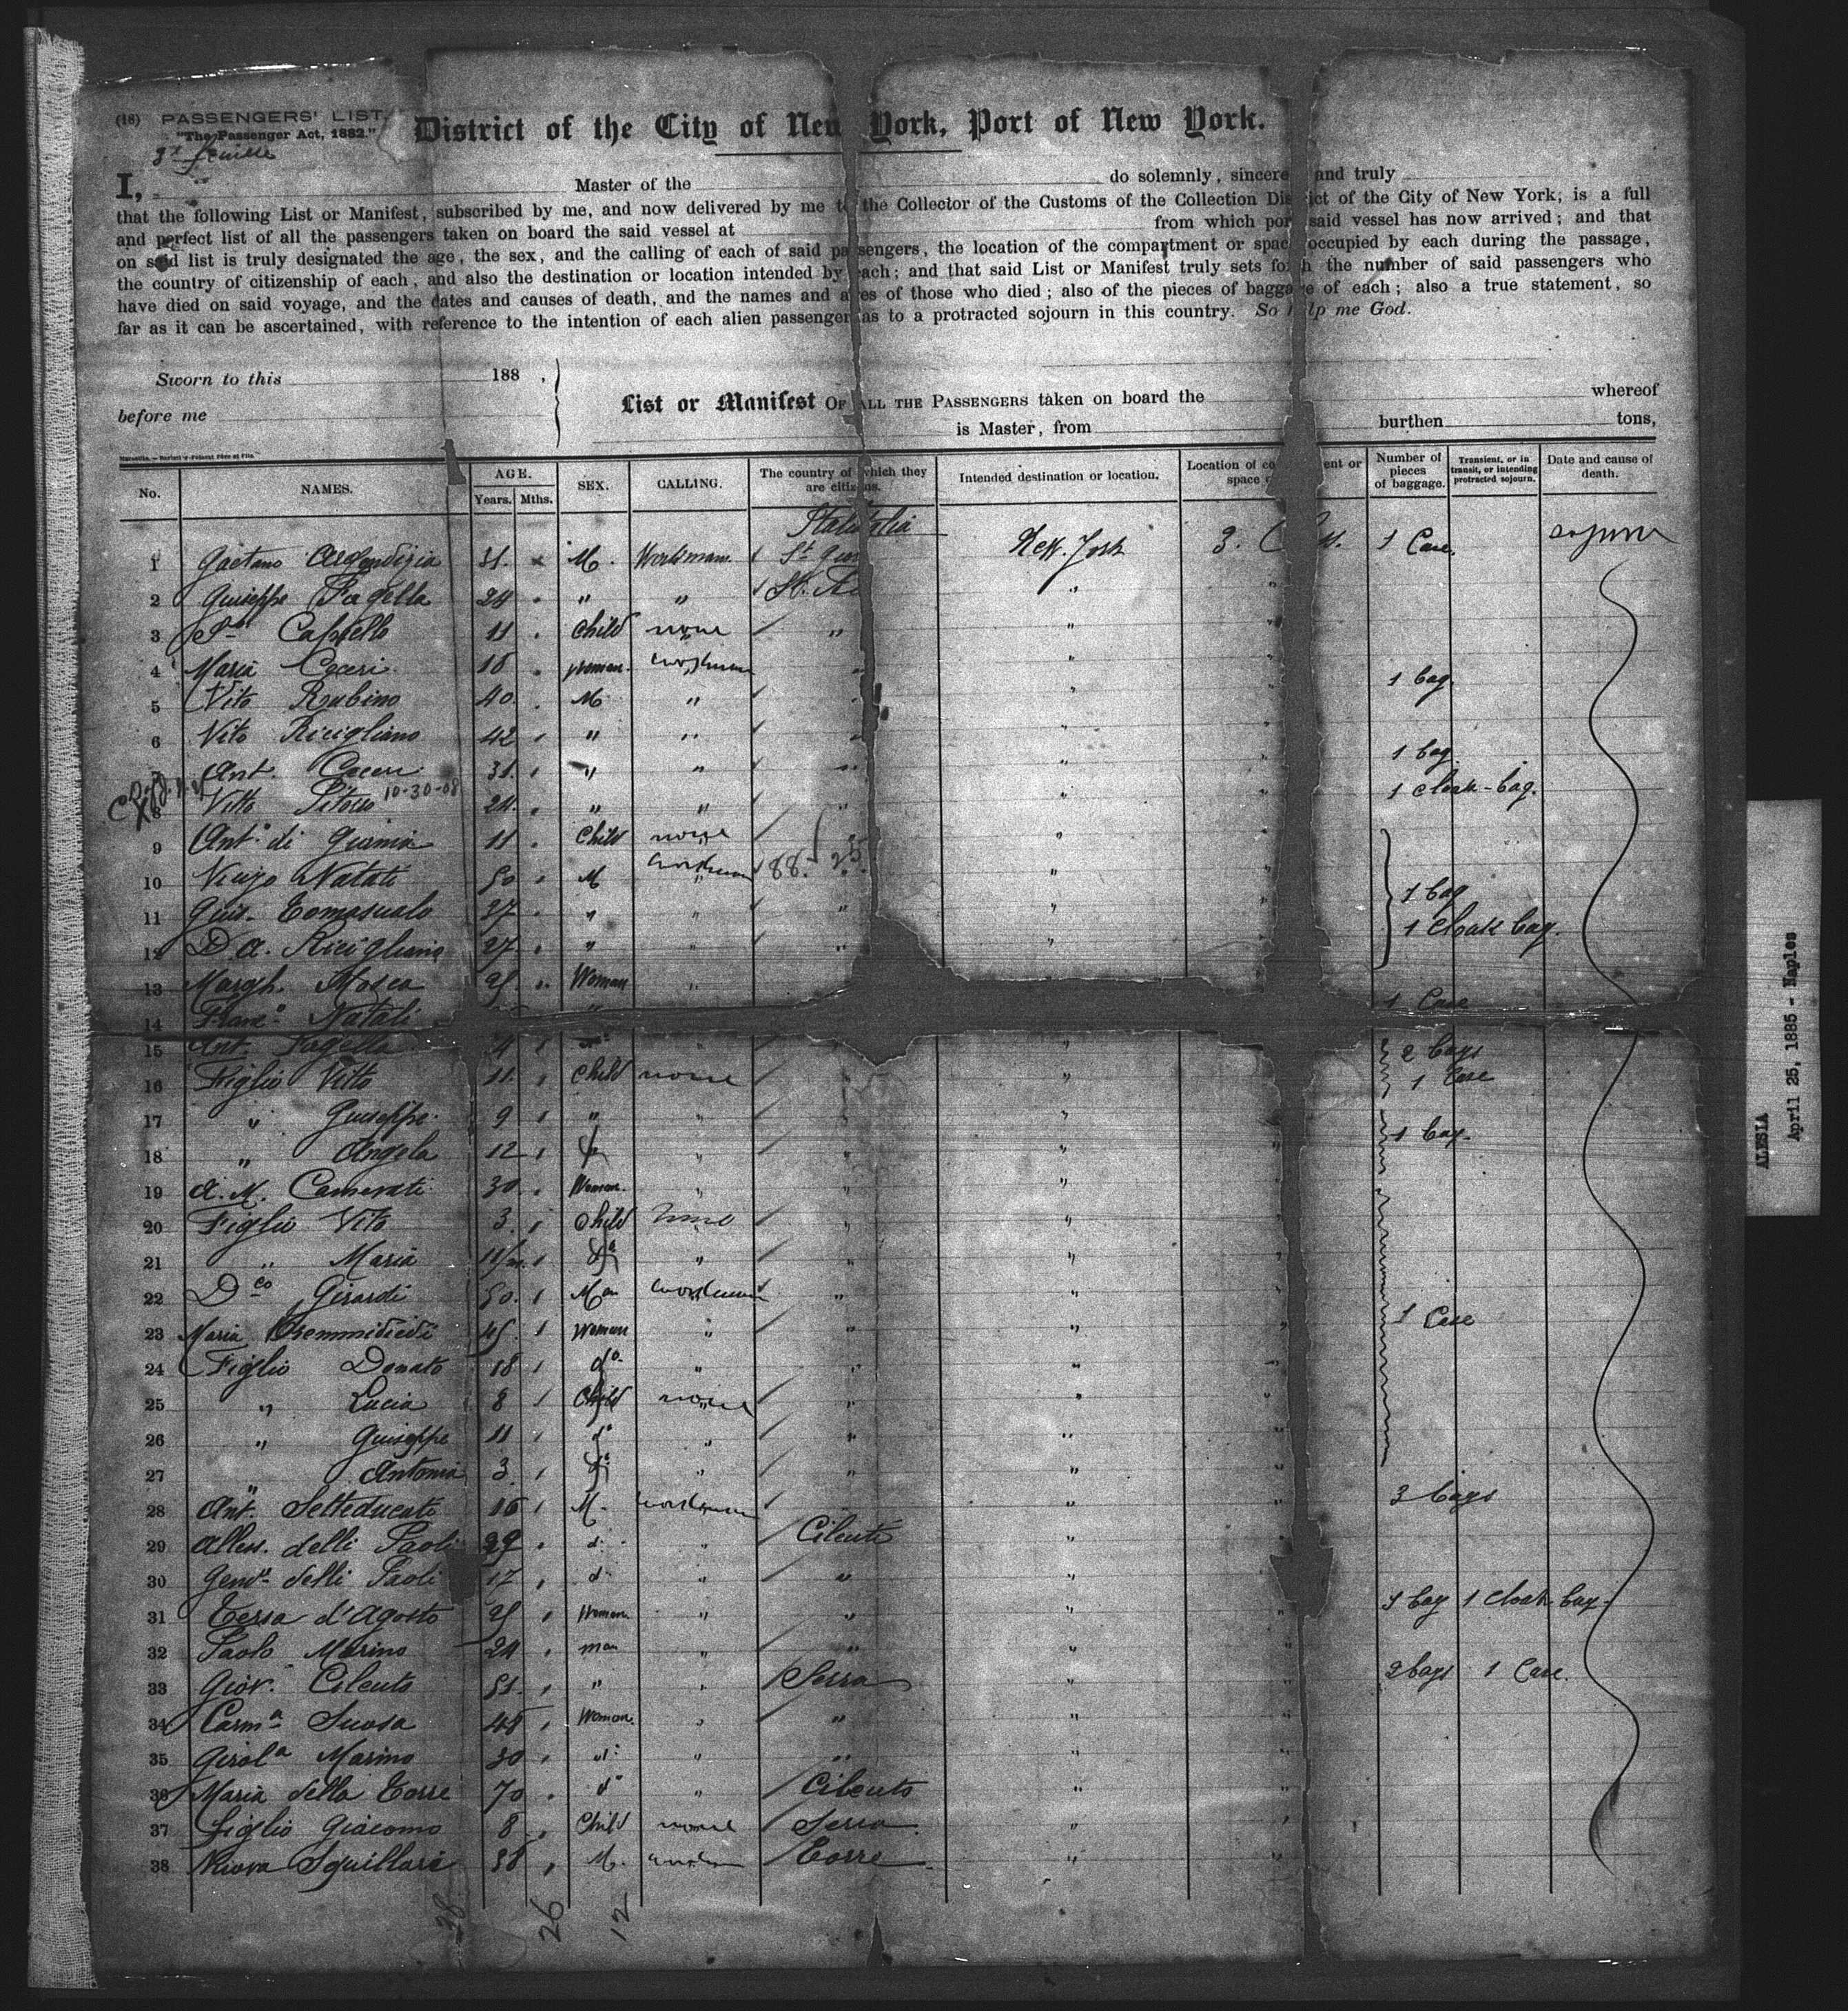 (18) PASSENGERS' LIST.
"The Passenger Act, 1882."
District of the City of New York, Port of New York.
I, Master of the do solemnly, sincere and truly
that the following List or Manifest, subscribed by me, and now delivered by me to the Collector of the Customs of the Collection District of the City of New York, is a full
and perfect list of all the passengers taken on board the said vessel at from which port said vessel has now arrived; and that
on said list is truly designated the age, the sex, and the calling of each of said passengers, the location of the compartment or space occupied by each during the passage,
the country of citizenship of each, and also the destination or location intended by each; and that said List or Manifest truly sets forth the number of said passengers who
have died on said voyage, and the dates and causes of death, and the names and ages of those who died; also of the pieces of baggage of each; also a true statement, so
far as it can be ascertained, with reference to the intention of each alien passenger as to a protracted sojourn in this country. So help me God.
Sworn to this 188 ,
before me
List or Manifest OF ALL THE PASSENGERS taken on board the whereof
is Master, from burthen tons,
No. NAMES. AGE. Years. Mths. SEX. CALLING. The country of which they are citizens. Intended destination or location. Location of co ent or space Number of pieces of baggage. Transient, or in transit, or intending protracted sojourn. Date and cause of death.
1 Gaetano 31. M. Workman New York 3. 1 Case
2 Guiseppe Fagella 24 " " "
3 Capiello 11 Child none " "
4 Maria Ceceri 18 woman workman "
5 Vito Rubino 40 M " " 1 bag.
6 Vito Ricigliano 42 " " "
7 Ant. Ceceri 31. " " " 1 bag
8 Vitto Pitosio 10-30-08 24. " " " " 1 cloak-bag.
9 Ant° di Giania 11 Child none " "
10 Natali 50 M workman 88. "
11 Gius. Tomasualo 37 " " " " 1 bag
12 D a. Ricigliano 27 " " " " 1 cloak bag.
13 Margh. Mosca 25 Woman "
14 Franc° Natali 1 Case
15 Ant. Fagella " 2 bags
16 Figlio Vitto 11. Child none " 1 Case
17 " Guiseppe 9 " " " "
18 " Angela 12 " " " 1 bag.
19 A. M. Camerati 30 Woman. " " "
20 Figlio Vito 3 Child none " "
21 " Maria 11/m. d° " " "
22 D co Girardi 50. Man workman " "
23 Maria 45. Woman " " " 1 Case
24 Figlio Donato 18 d° " " "
25 " Lucia 8 Child none " "
26 " Guiseppe 11 d° " " "
27 " Antonia 3 d° " " "
28 Ant. Setteducati 16 M. workman " " 3 bags
29 Aless. delli Paoli 29 d° " Cilento "
30 Genn° delli Paoli 17 d° " " "
31 Teresa d'Agosto 25 Woman " " " 1 bag 1 cloak-bag.
32 Paolo Marino 24 man " " "
33 Giov. Cilento 51. " " Serra " 2 bags 1 Case.
34 Carm a Suosa 48 Woman. " " "
35 Girol a Marino 30 d° " " "
36 Maria della Torre 70 d° " Cilento "
37 Figlio Giacomo 8 Child none Serra "
38 Nuova Squillari 38 M. Torre "
38 26 12
ALESIA
April 25, 1885 - Naples